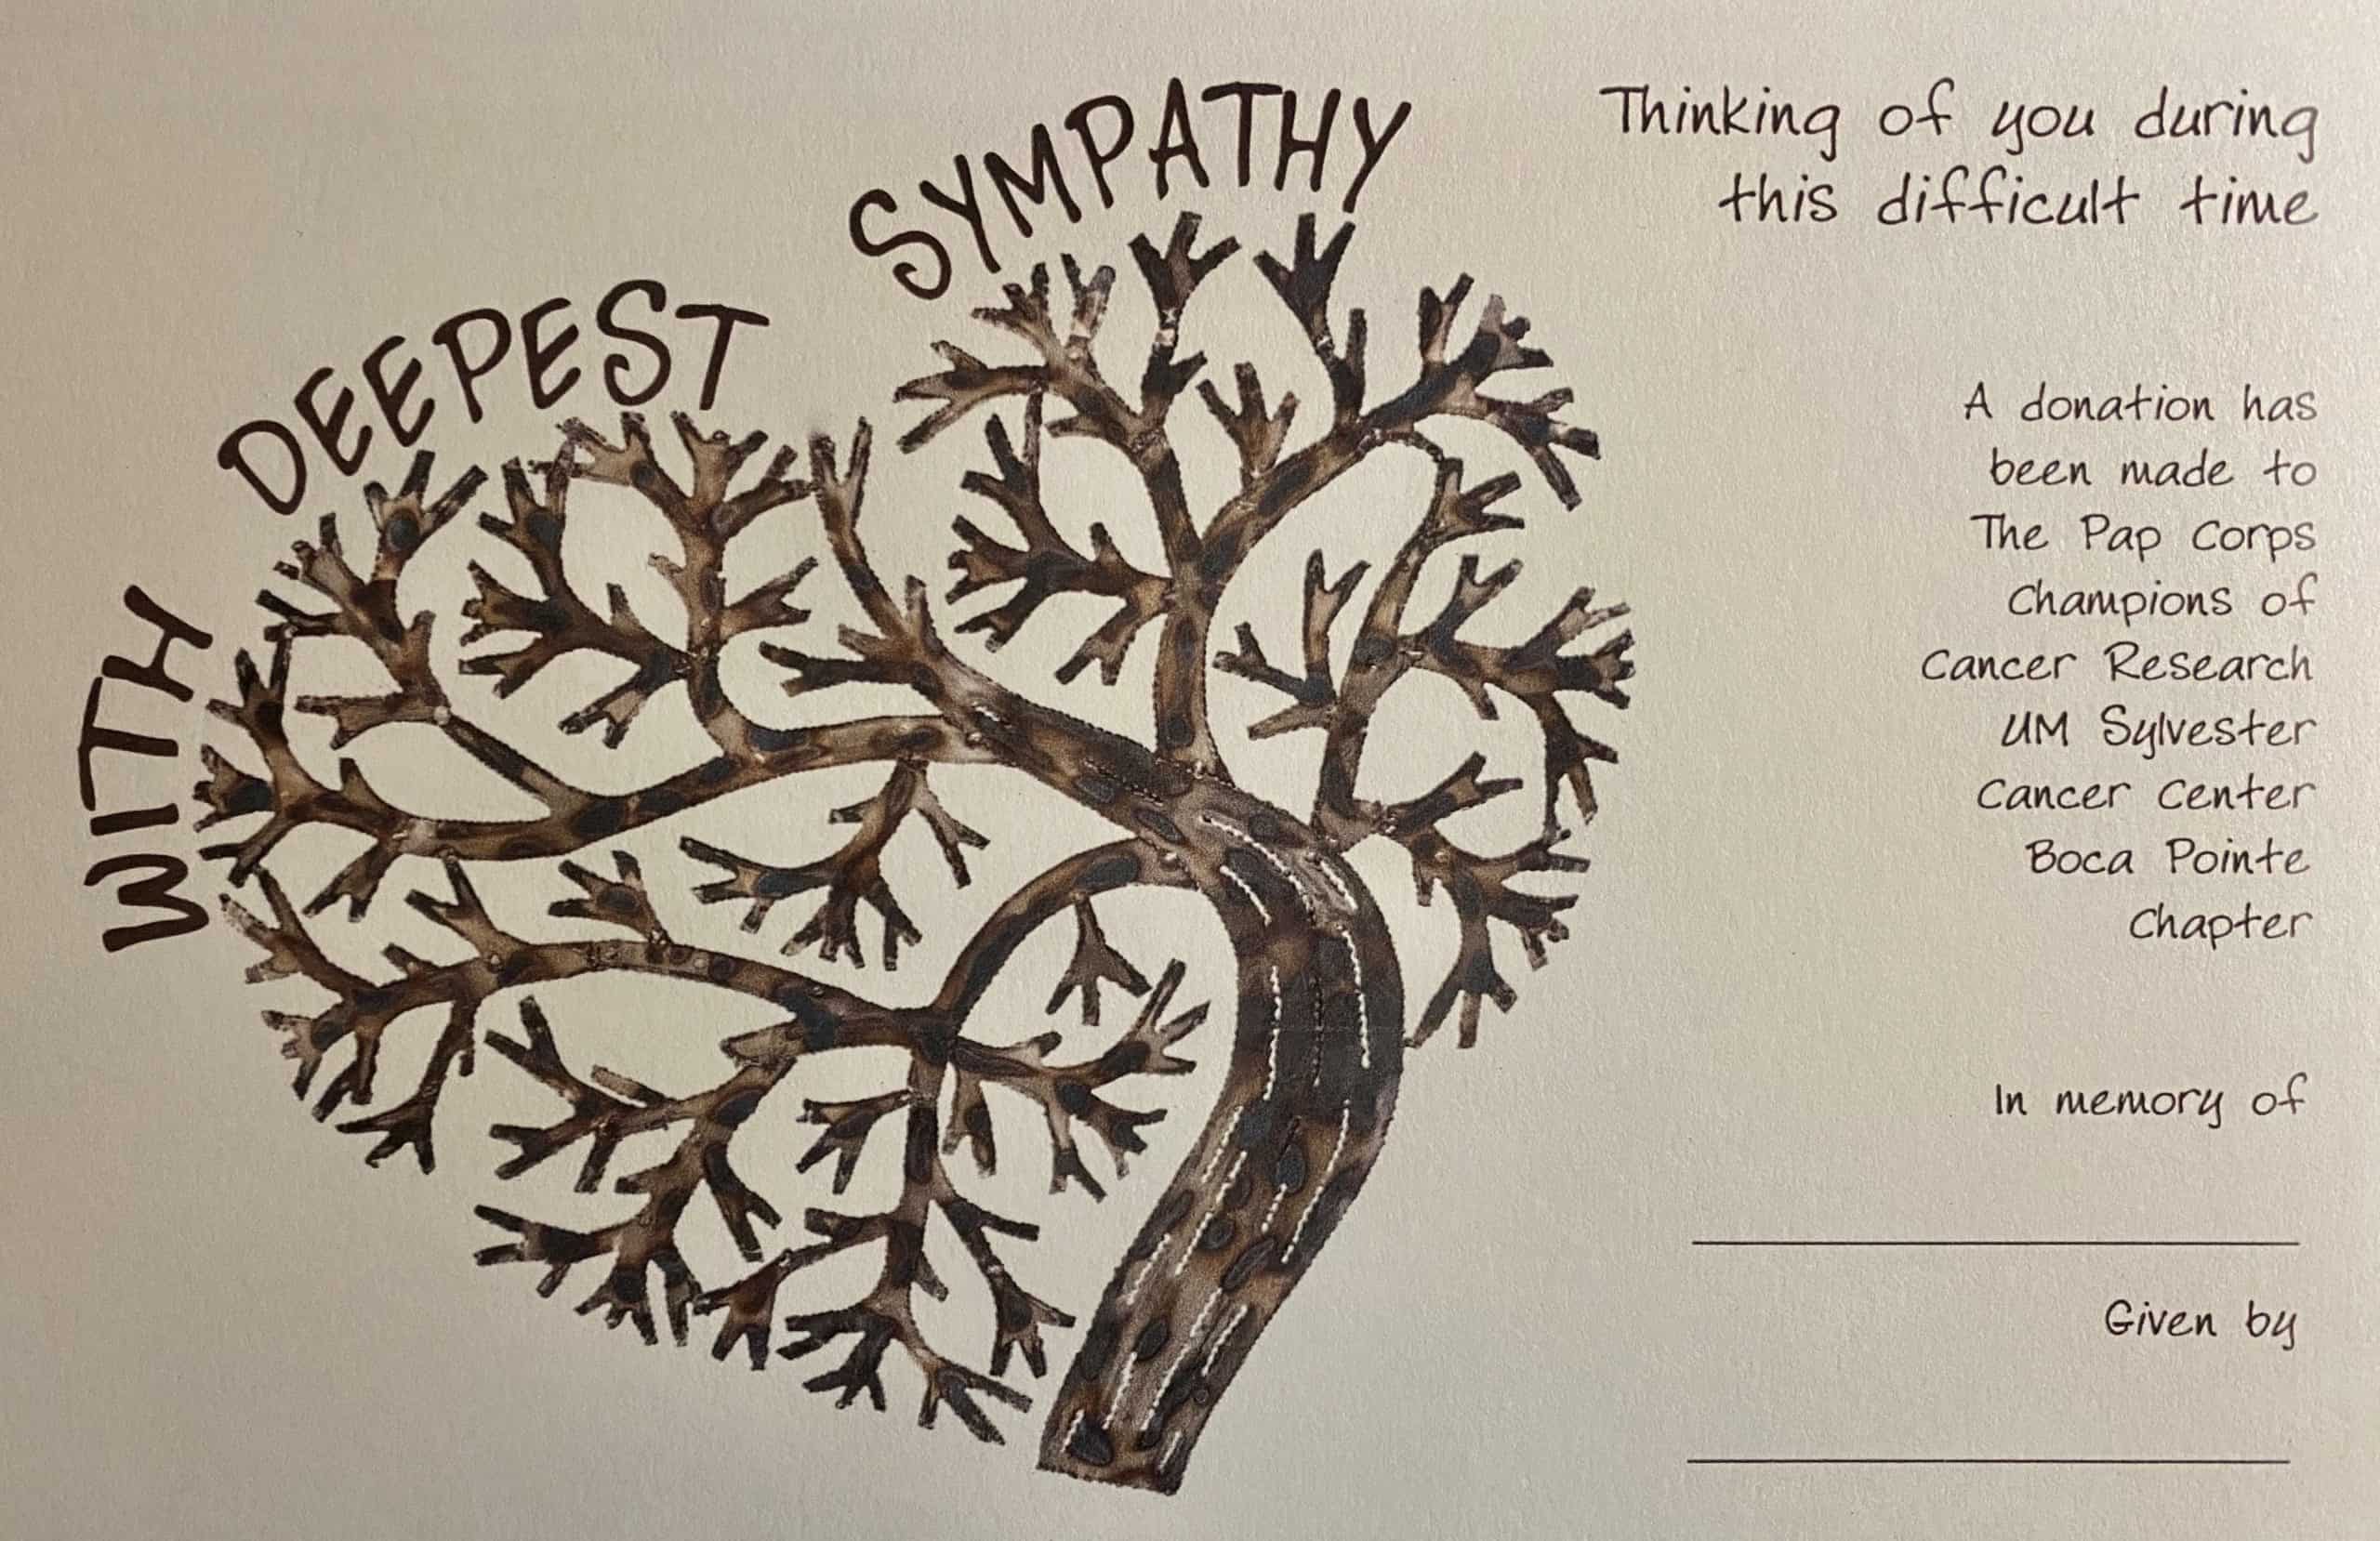 WITH DEEPEST SYMPATHY
Thinking of you during
this difficult time
A donation has
been made to
The Pap Corps
Champions of
Cancer Research
UM Sylvester
Cancer Center
Boca Pointe
Chapter
In memory of
Given by